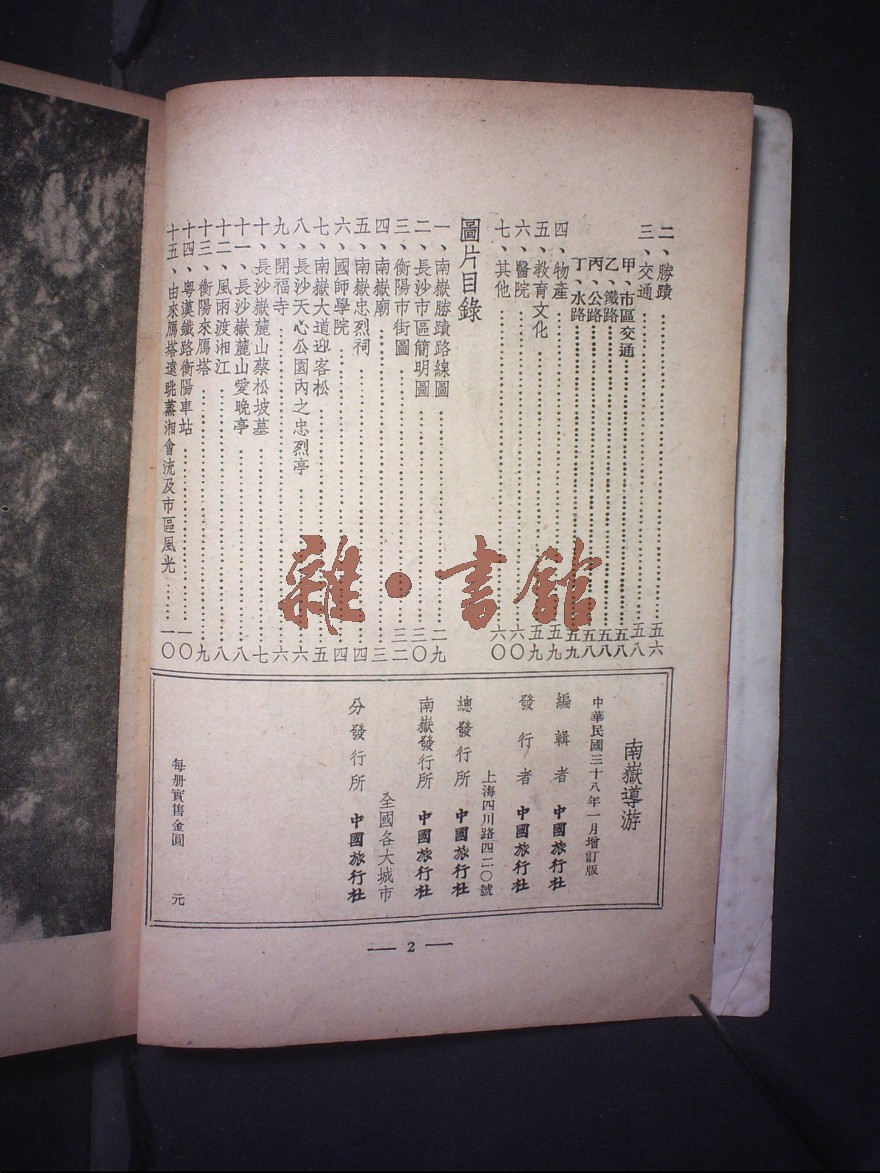 二、勝蹟……五六
三、交通……五八
甲、市區交通……五八
乙、鐵路……五八
丙、公路……五八
丁、水路……五九
四、物產……五九
五、教育文化……五九
六、醫院……六〇
七、其他……六〇
圖片目錄
一、南嶽勝蹟路線圖……二九
二、長沙市區簡明圖……三〇
三、衡陽市街圖……三二
四、南嶽廟……三
五、南嶽忠烈祠……四
六、國師學院……四
七、南嶽大道迎客松……五
八、長沙天心公園內之忠烈亭……六
九、開福寺……六
十、長沙嶽麓山蔡松坡墓……七
十一、長沙嶽麓山愛晚亭……八
十二、風雨渡湘江……八
十三、衡陽來雁塔……九
十四、粵漢鐵路衡陽車站……一〇
十五、由來雁塔遠眺蒸湘會流及市區風光……一〇
南嶽導游
中華民國三十八年一月增訂版
編輯者 中國旅行社
發行者 中國旅行社
上海四川路四二〇號
總發行所 中國旅行社
南嶽發行所 中國旅行社
全國各大城市
分發行所 中國旅行社
每册實售金圓 元
— 2 —
雜·書館